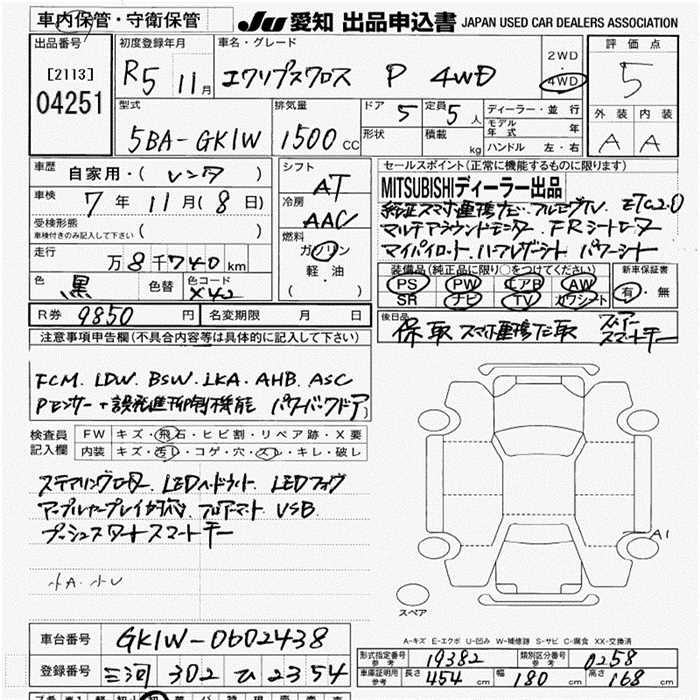 車内保管・守衛保管
JU 愛知 出品申込書 JAPAN USED CAR DEALERS ASSOCIATION
出品番号
[2113]
04251
初度登録年月
R5 11月
車名・グレード
エクリプスクロス P 4WD
2WD
・
4WD
評価点
5
外装 内装
A A
型式
5BA-GK1W
排気量
1500 CC
ドア 5
形状
定員 5人
積載 kg
ディーラー・並行
モデル年式 年
ハンドル 左・右
車歴 自家用・(レンタ)
車検 7年11月(8日)
受検形態
車検付きのみ記入して下さい ( )
走行 万8千740km
色 黒 色替 色コード X42
シフト
AT
冷房
AAC
燃料
ガソリン
軽・油
( )
セールスポイント(正常に機能するものに限ります)
MITSUBISHIディーラー出品
純正スマホ連携ナビ フルセグTV ETC2.0
マルチアラウンドモニター FRシートヒーター
マイパイロット ハーフレザーシート パワーシート
装備品(純正品に限り○をつけてください)
PS PW エアB AW
SR ナビ TV カワシート
新車保証書
有・無
R券 9850円 名変期限 月 日
後日品
保取 スマホ連携ナビ取
スマートキー
注意事項申告欄(不具合内容等は具体的に記入して下さい)
FCM. LDW. BSW. LKA. AHB. ASC
Pセンサー+誤発進抑制機能 パワーバックドア
検査員記入欄
FW キズ・飛石・ヒビ割・リペア跡・X要
内装 キズ・汚レ・コゲ・穴・スレ・キレ・破レ
ステアリングヒーター. LEDヘッドライト. LEDフォグ
アップルカープレイ対応. フロアマート USB
プッシュスタートスマートキー
小A.小U
A1
スペア
A-キズ E-エクボ U-凹み W-補修跡 S-サビ C-腐食 XX-交換済
車台番号 GK1W-0602438
登録番号 三河 302 ひ 2354
形式指定番号 参考 19382 類別区分番号 参考 0258
車庫証明用 参考 長さ 454cm 幅 180cm 高さ 168cm